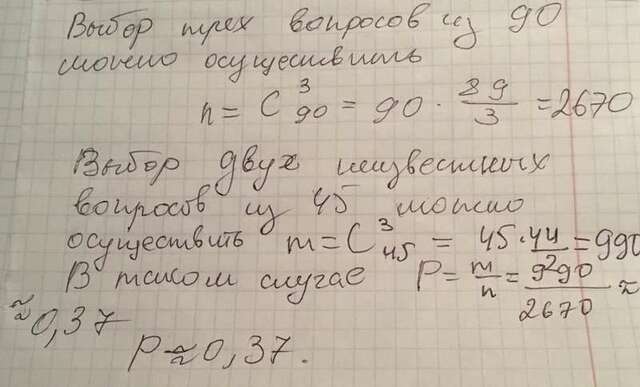 Выбор трех вопросов из 90
можно осуществить
n = C³₉₀ = 90 · 89/3 = 2670
Выбор двух неизвестных
вопросов из 45 можно
осуществить m = C³₄₅ = 45·44/2 = 990
В таком случае P = m/n = 990/2670 ≈
≈ 0,37
P ≈ 0,37.